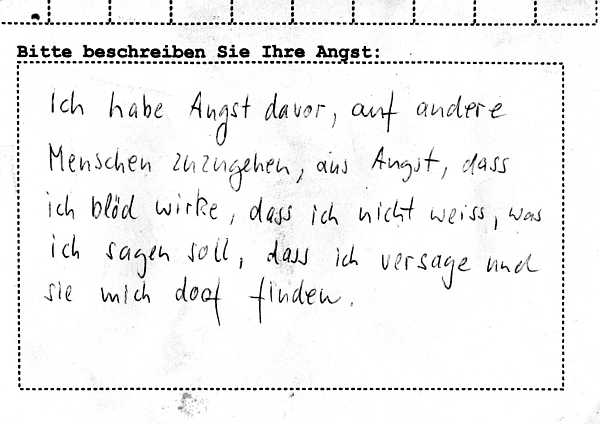 Bitte beschreiben Sie Ihre Angst:
Ich habe Angst davor, auf andere
Menschen zuzugehen, aus Angst, dass
ich blöd wirke, dass ich nicht weiss, was
ich sagen soll, dass ich versage und
sie mich doof finden.